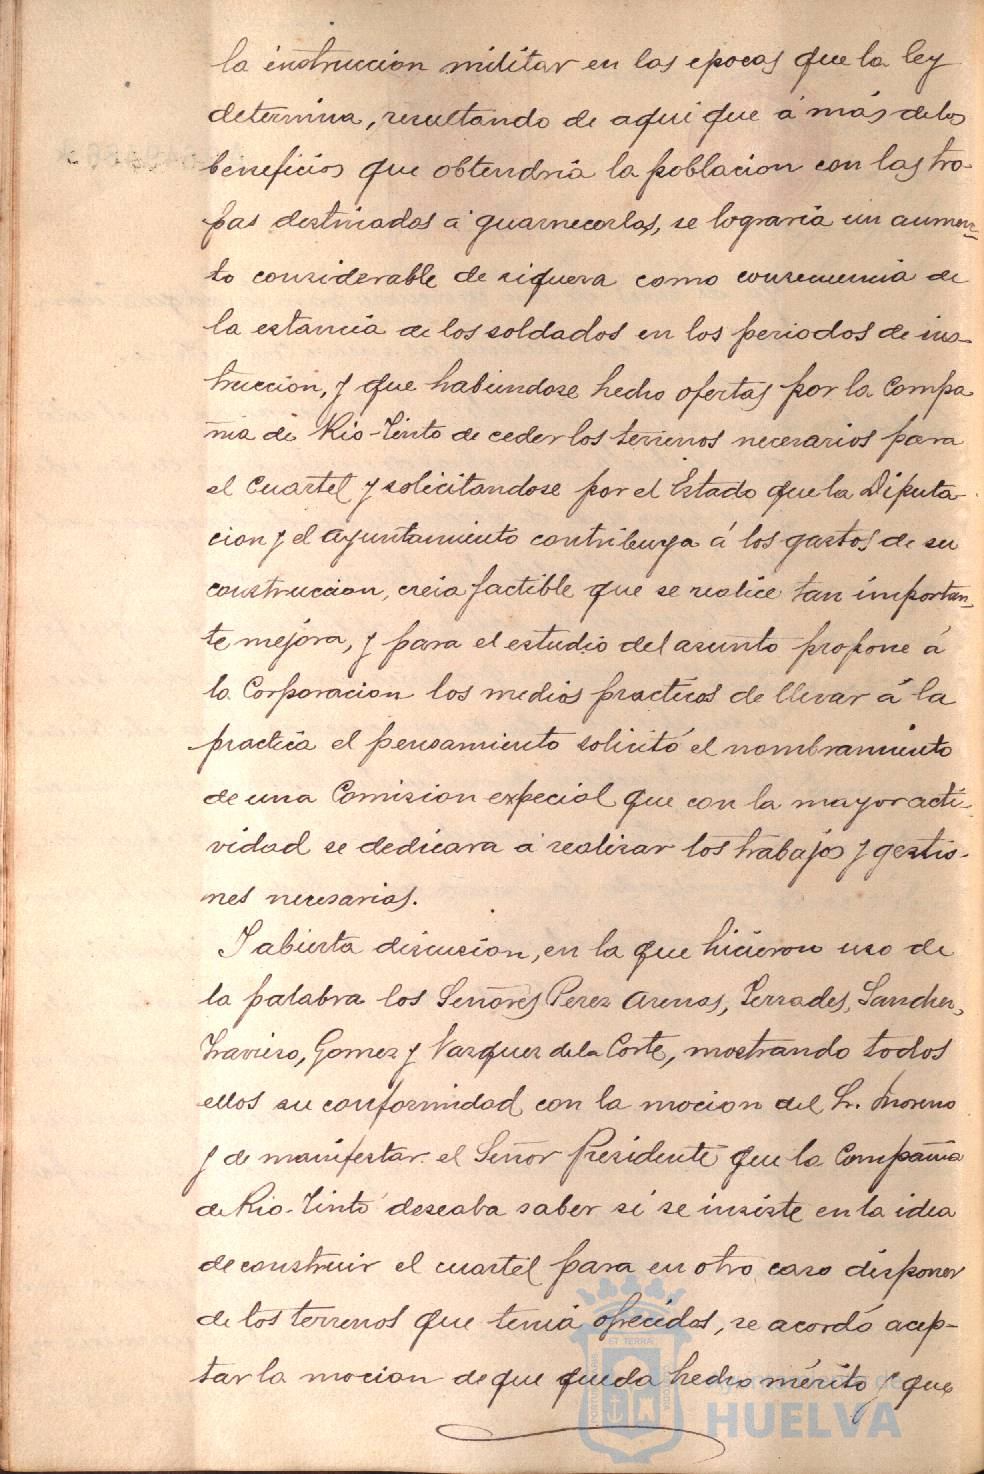 la instruccion militar en las epocas que la ley
determina, resultando de aqui que á más de los
beneficios que obtendria la poblacion con las tro-
pas destinadas á guarnecerlas, se lograria un aumen-
to considerable de riqueza como consecuencia de
la estancia de los soldados en los periodos de ins-
truccion, y que habiendose hecho ofertas por la Compa
ñia de Rio-Tinto de ceder los terrenos necesarios para
el Cuartel y solicitandose por el Estado que la Diputa-
cion y el Ayuntamiento contribuya á los gastos de su
construccion, creia factible que se realice tan importan-
te mejora, y para el estudio del asunto propone á
la Corporacion los medios practicos de llevar á la
practica el pensamiento solicitó el nombramiento
de una Comision especial que con la mayor acti-
vidad se dedicara á realizar los trabajos y gestio-
nes necesarias.
Y abierta discusion, en la que hicieron uso de
la palabra los Señores Perez Arenas, Terrades, Sanchez,
Travieso, Gomez y Vazquez de la Corte, mostrando todos
ellos su conformidad con la mocion del Sr. Moreno
y de manifestar el Señor Presidente que la Compañia
de Rio-Tinto deseaba saber si se insiste en la idea
de construir el cuartel para en otro caso disponer
de los terrenos que tenia ofrecidos, se acordó acep-
tar la mocion de que queda hecho mérito y que
Ayuntamiento de
HUELVA